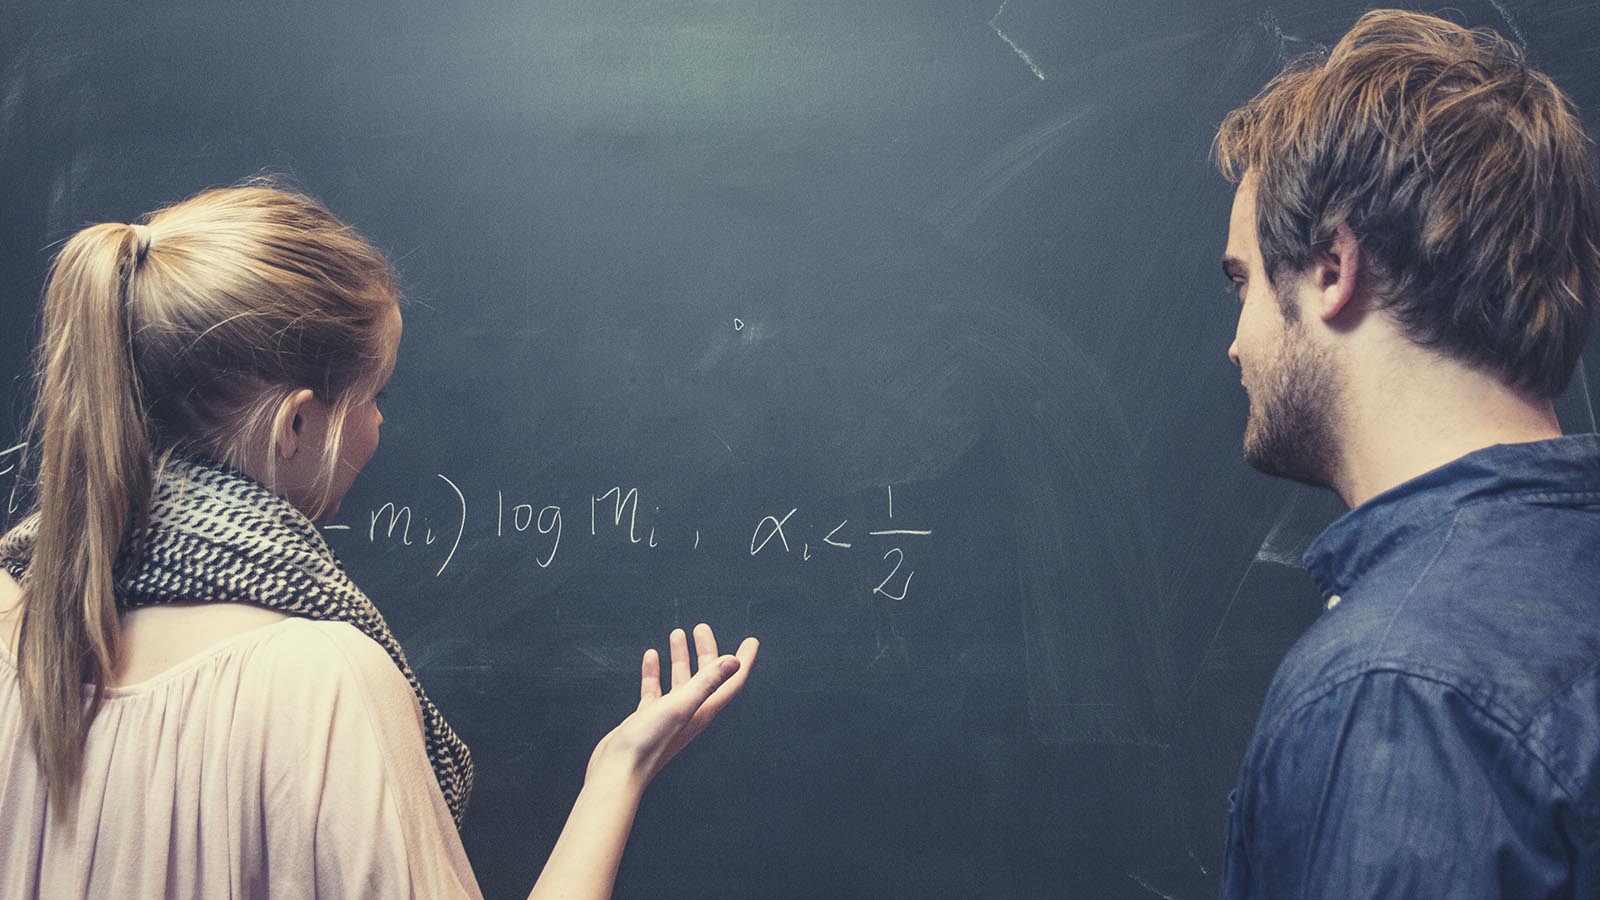 - mᵢ) log mᵢ , αᵢ < 1/2